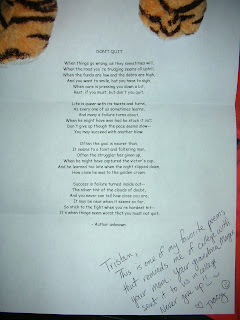 DON'T QUIT
When things go wrong, as they sometimes will,
When the road you're trudging seems all uphill,
When the funds are low and the debts are high,
And you want to smile, but you have to sigh,
When care is pressing you down a bit,
Rest if you must, but don't you quit.
Life is queer with its twists and turns,
As every one of us sometimes learns,
And many a failure turns about,
When he might have won had he stuck it out;
Don't give up though the pace seems slow--
You may succeed with another blow.
Often the goal is nearer than,
It seems to a faint and faltering man,
Often the struggler has given up,
When he might have captured the victor's cup,
And he learned too late when the night slipped down,
How close he was to the golden crown.
Success is failure turned inside out--
The silver tint of the clouds of doubt,
And you never can tell how close you are,
It may be near when it seems so far,
So stick to the fight when you're hardest hit--
It's when things seem worst that you must not quit.
- Author unknown
Tristan,
This is one of my favorite poems
that reminds me of
your mom. Your grandma
sent it to us in college
Never give up ~